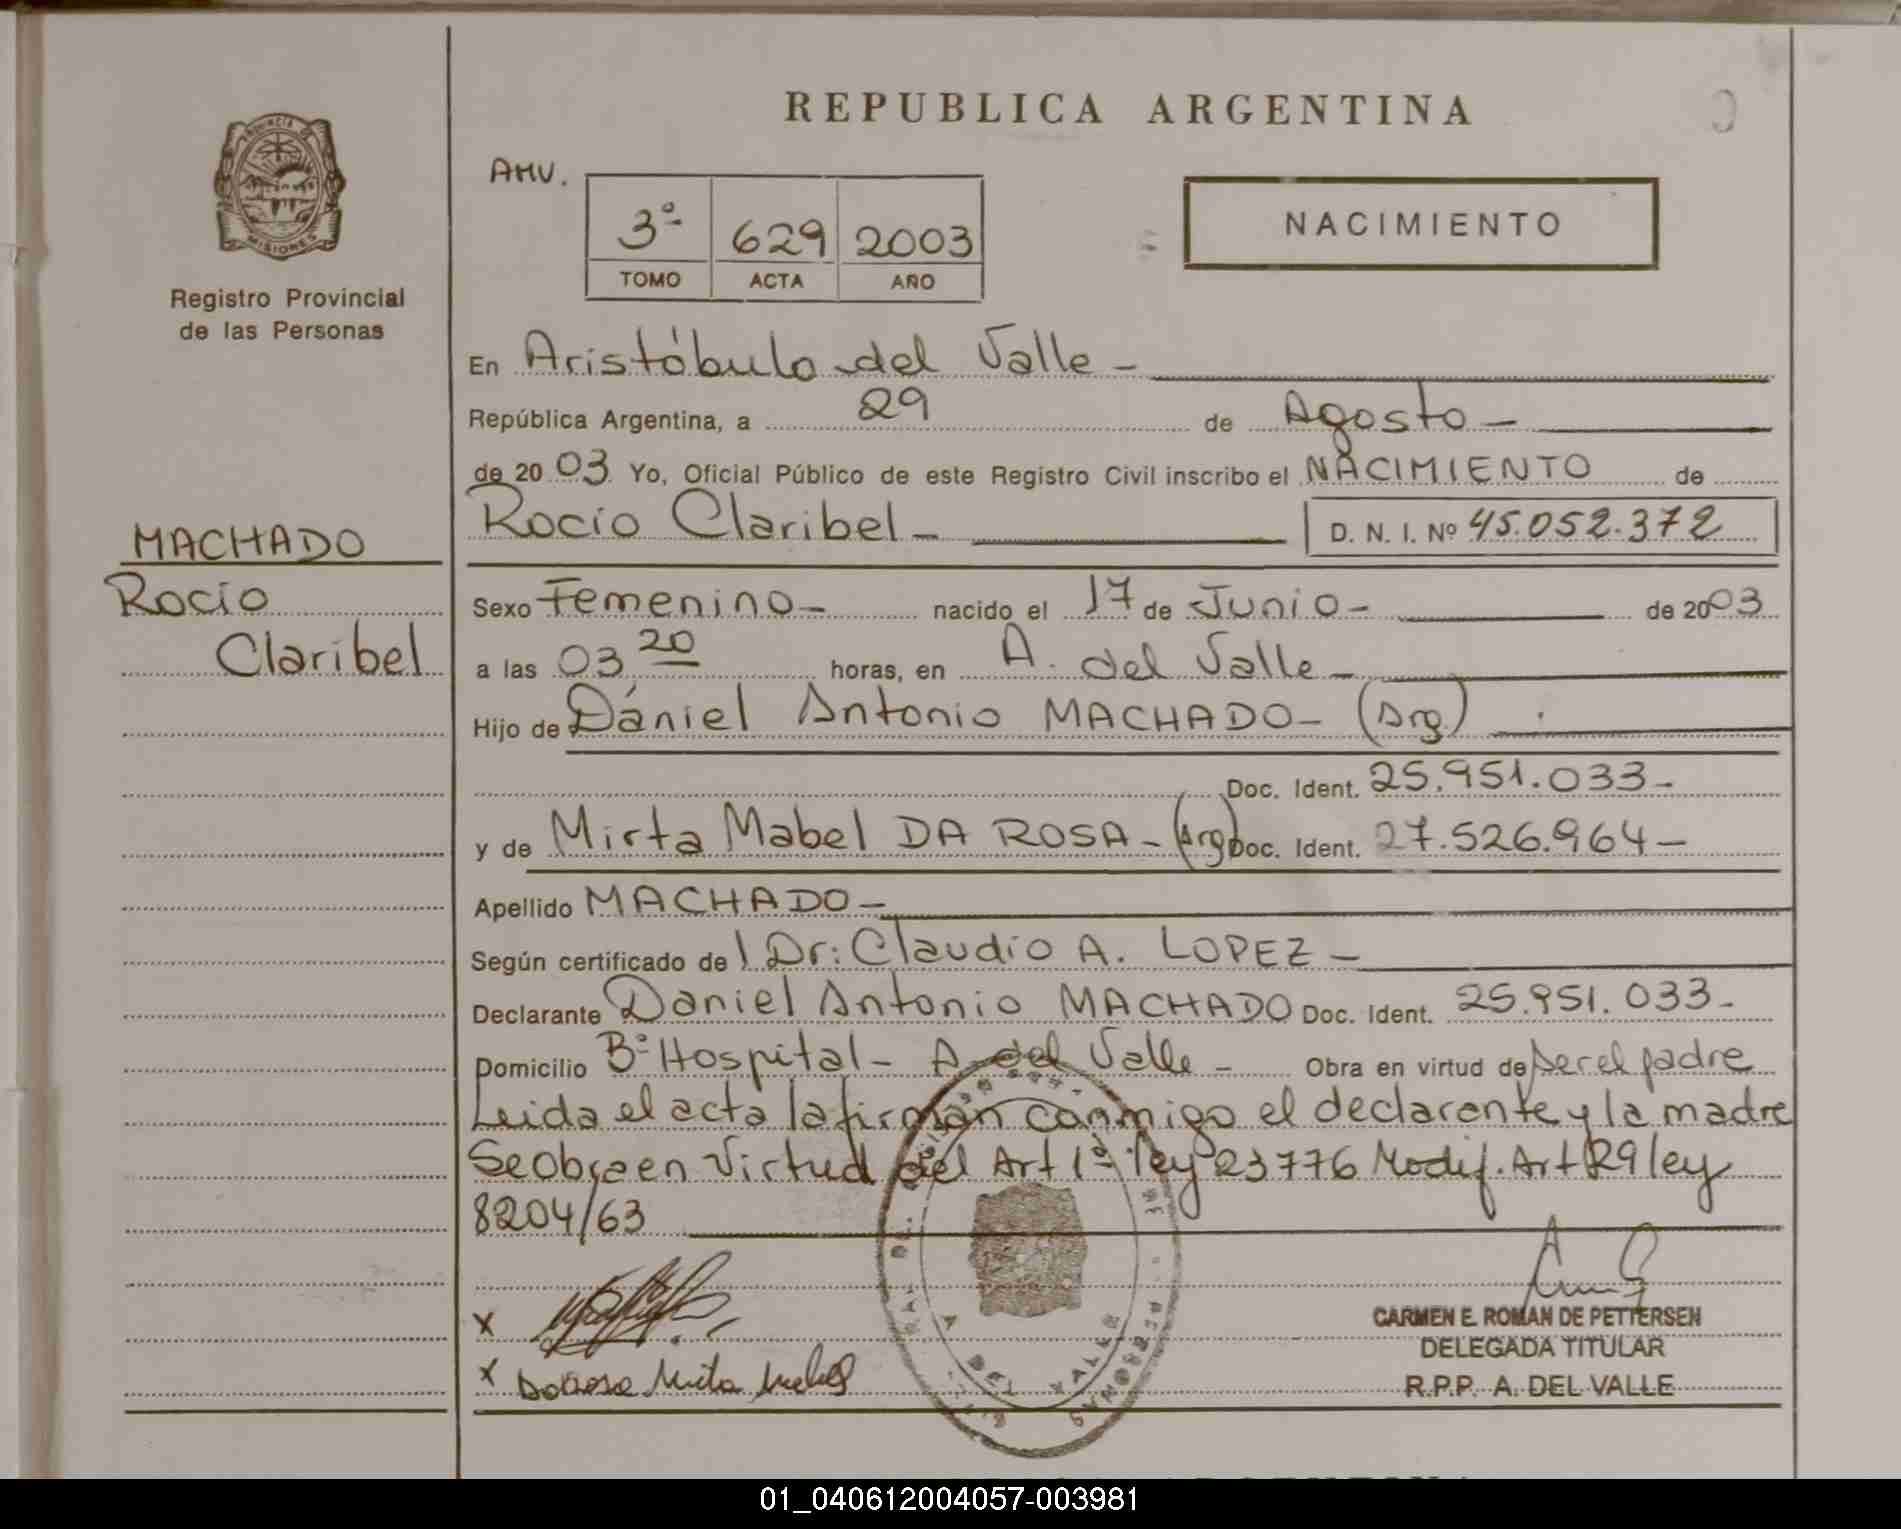 REPUBLICA ARGENTINA
AMV.
3º 629 2003
TOMO ACTA AÑO
NACIMIENTO
PROVINCIA DE
MISIONES
Registro Provincial
de las Personas
MACHADO
Rocío
Claribel
En Aristóbulo del Valle -
República Argentina, a 29 de Agosto -
de 20 03 Yo, Oficial Público de este Registro Civil inscribo el NACIMIENTO de
Rocío Claribel - D. N. I. Nº 45.052.372
Sexo Femenino - nacido el 17 de Junio - de 2003
a las 03 20 horas, en A. del Valle -
Hijo de Daniel Antonio MACHADO - (Arg.)
Doc. Ident. 25.951.033 -
y de Mirta Mabel DA ROSA - (Arg) Doc. Ident. 27.526.964 -
Apellido MACHADO -
Según certificado de l Dr: Claudio A. LOPEZ -
Declarante Daniel Antonio MACHADO Doc. Ident. 25.951.033 -
Domicilio Bº Hospital - A. del Valle - Obra en virtud de ser el padre
Leida el acta la firman conmigo el declarante y la madre
Se obra en virtud del Art 1º ley 23776 Modif. Art 29 ley
8204/63
X
X Mirta
A. DEL VALLE
CARMEN E. ROMAN DE PETTERSEN
DELEGADA TITULAR
R.P.P. A. DEL VALLE
01_040612004057-003981